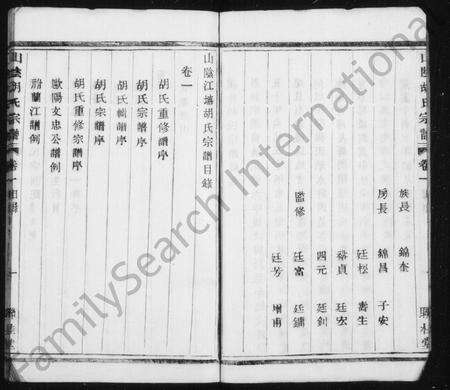 山陰胡氏宗譜
卷一
族長 錦奎
房長 錦昌 子安
廷松 壽生
廷宏
四元 廷釗
監修 廷富 廷鏞
廷芳 增甫
山陰江墻胡氏宗譜目錄
卷一
胡氏宗譜序
胡氏重修譜序
胡氏譜序
胡氏宗譜序
胡氏重修宗譜序
歐陽文忠公譜例
譜例
山陰胡氏宗譜
卷一
目錄
一
FamilySearch International